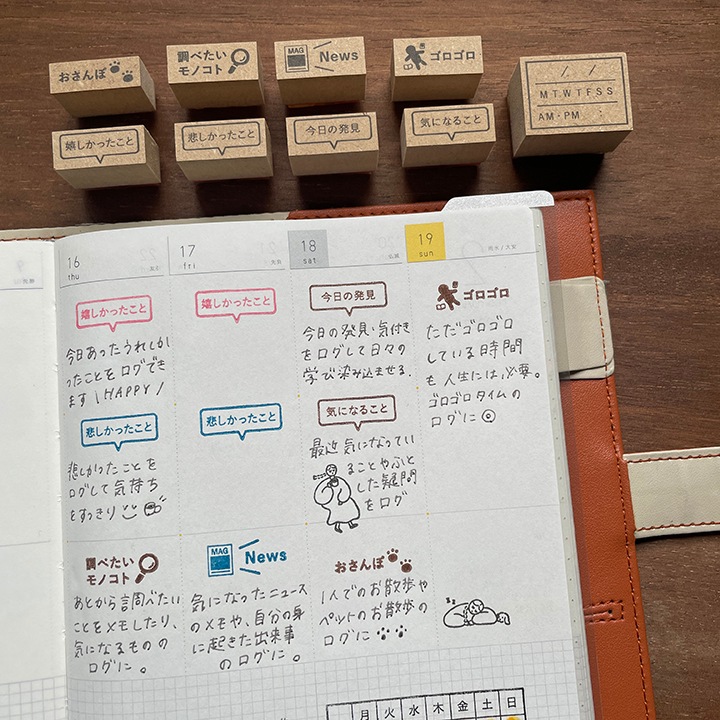 おさんぽ
調べたい
モノコト
MAG
News
ゴロゴロ
M T W T F S S
AM・PM :
嬉しかったこと
悲しかったこと
今日の発見
気になること
16
thu
17
fri
18
sat
19
sun
嬉しかったこと
嬉しかったこと
今日の発見
ゴロゴロ
今日あったうれしか
ったことをログでき
ます \HAPPY/
今日の発見・気付き
をログして日々の
学び染み込ませる.
ただゴロゴロ
している時間
も人生には必要。
ゴロゴロタイムの
ログに
悲しかったこと
悲しかったこと
気になること
悲しかったことを
ログして気持ち
をすっきり
最近気になってい
ることやふと
した疑問
をログ
調べたい
モノコト
MAG
News
おさんぽ
あとから調べたい
ことをメモしたり、
気になるものの
ログに。
気になったニュース
のメモや、自分の身
に起きた出来事
のログに。
1人でのお散歩や
ペットのお散歩の
ログに
zz
月 火 水 木 金 土 日